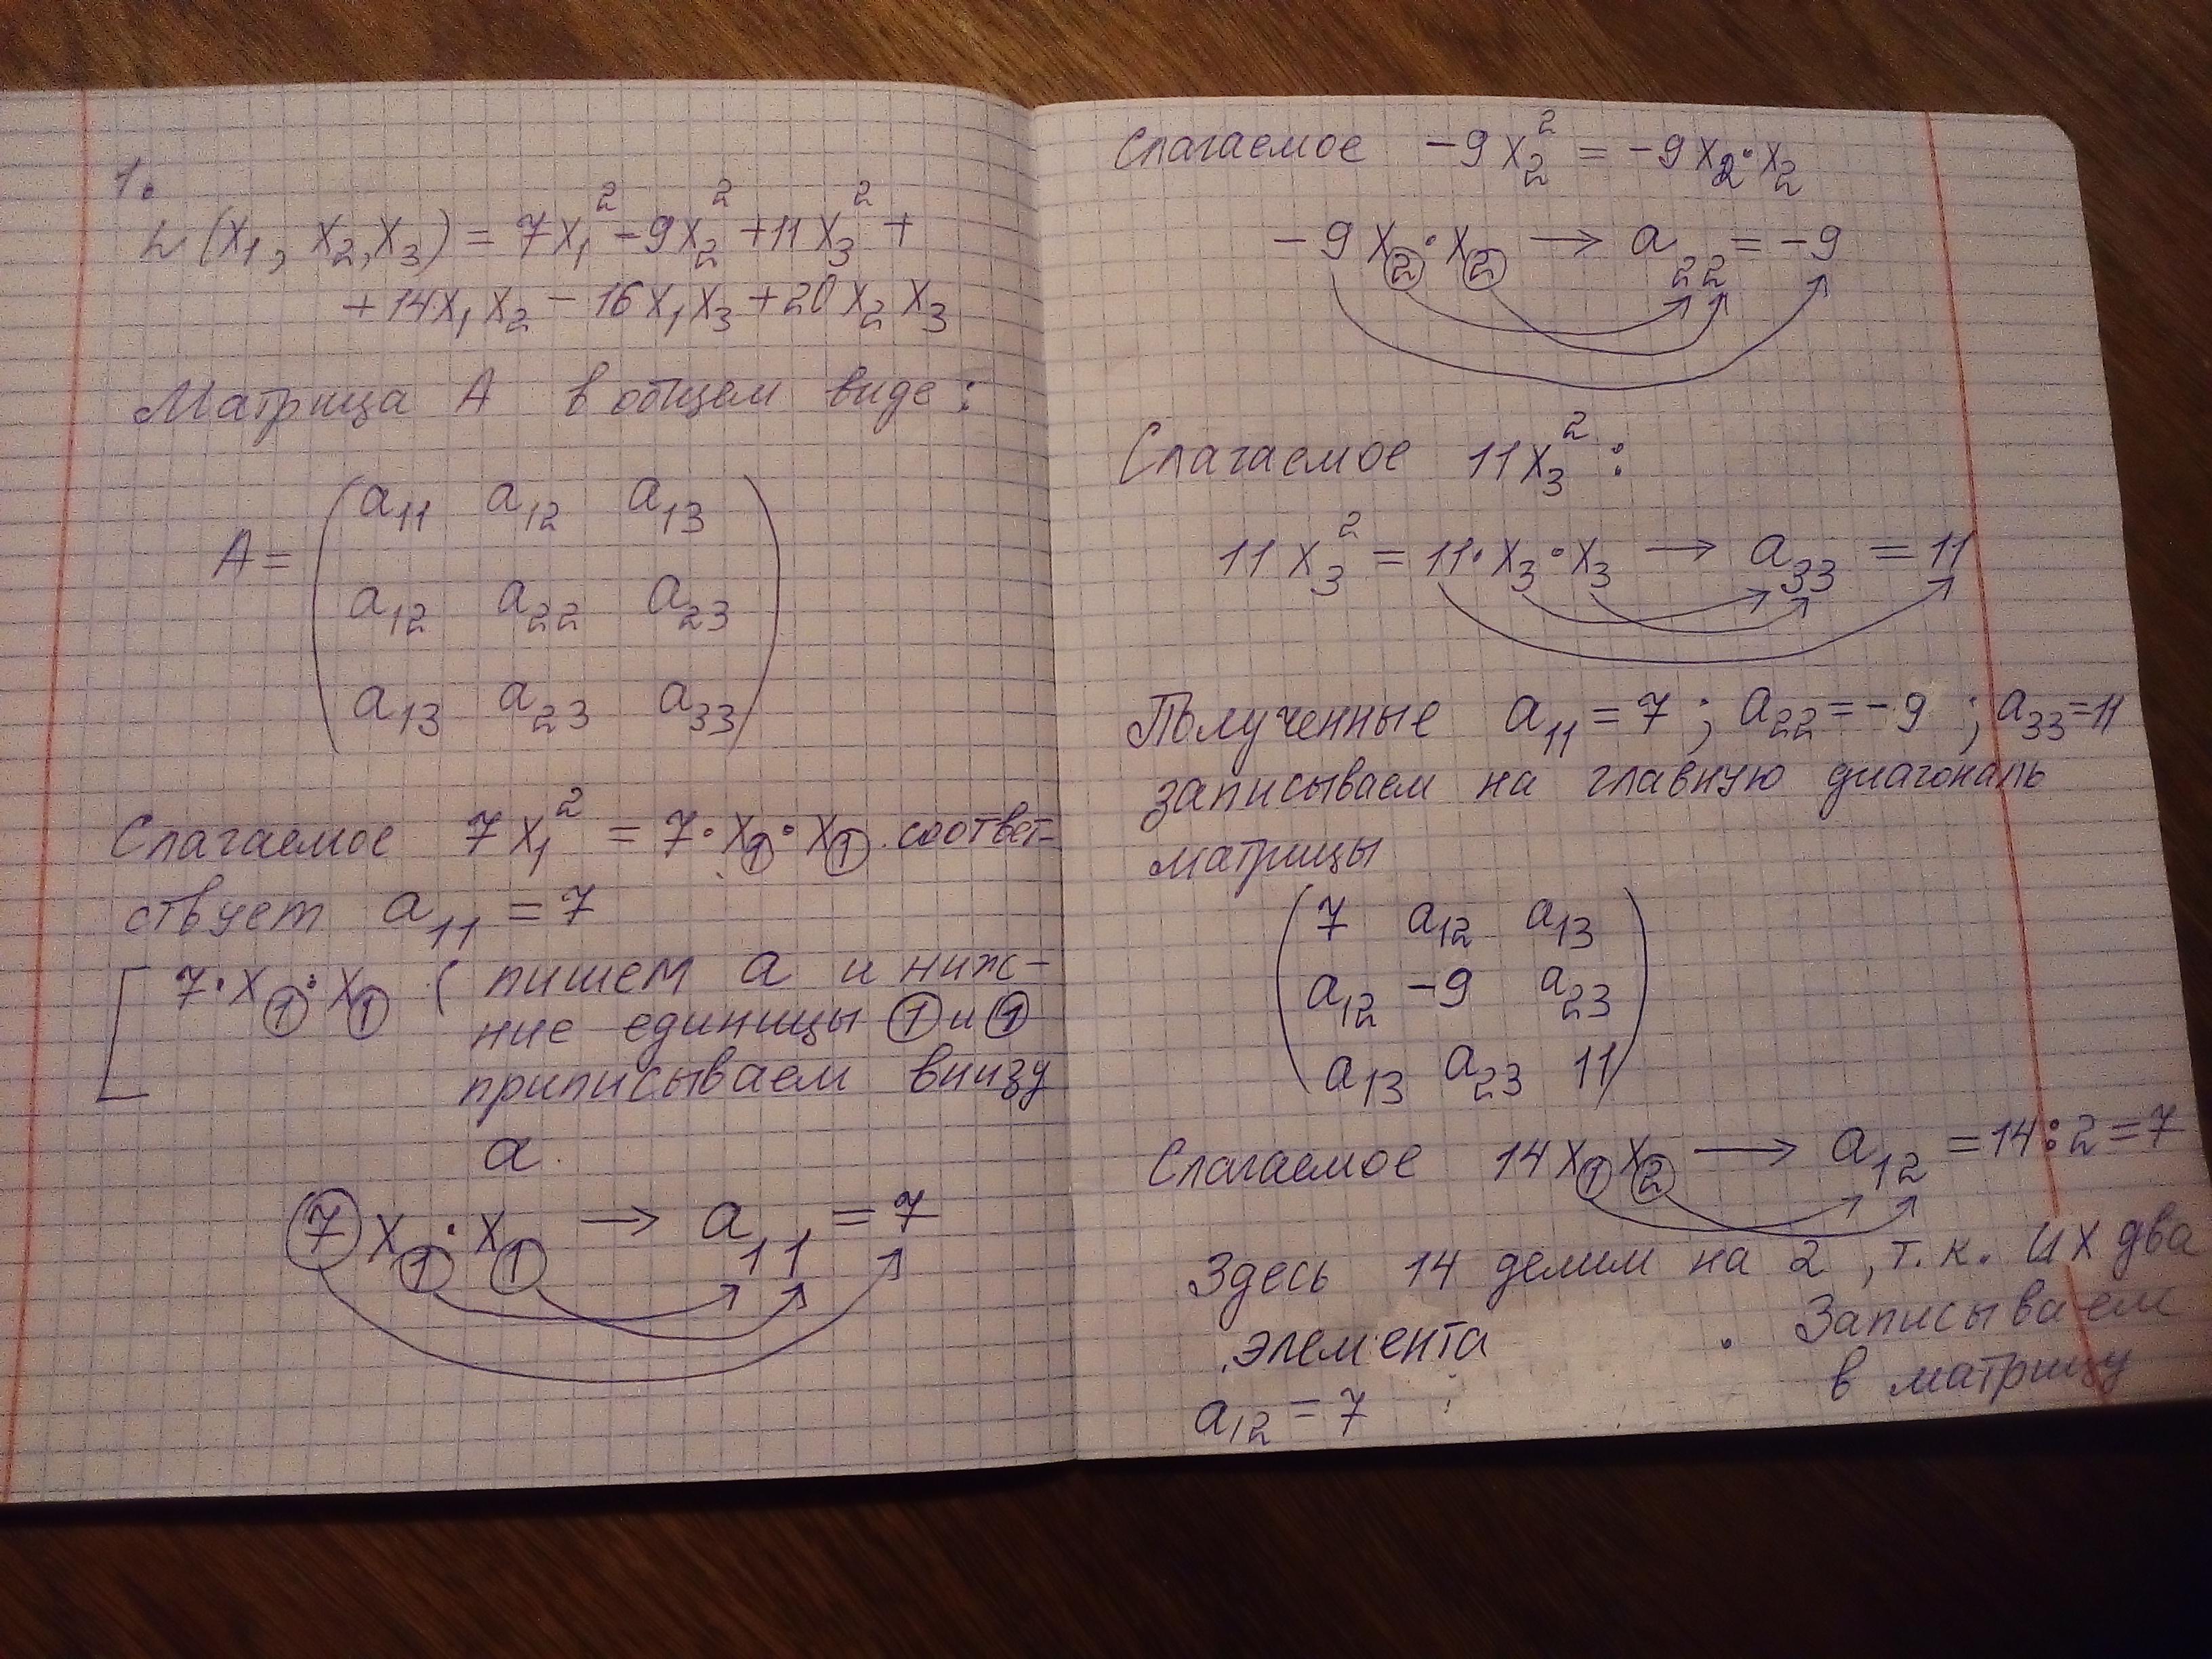 1.
L(x₁, x₂, x₃) = 7x₁² - 9x₂² + 11x₃² +
+ 14x₁x₂ - 16x₁x₃ + 20x₂x₃
Матрица A в общем виде:
a₁₁ a₁₂ a₁₃
A =
a₁₂ a₂₂ a₂₃
a₁₃ a₂₃ a₃₃
Слагаемое 7x₁² = 7·x₁·x₁ соответ-
ствует a₁₁ = 7
[ 7·x₁·x₁ ( пишем a и ниж-
ние единицы 1 и 1
приписываем внизу
a.
7x₁·x₁ → a₁₁ = 7
Слагаемое -9x₂² = -9x₂·x₂
-9x₂·x₂ → a₂₂ = -9
Слагаемое 11x₃²:
11x₃² = 11·x₃·x₃ → a₃₃ = 11
Полученные a₁₁ = 7; a₂₂ = -9; a₃₃ = 11
записываем на главную диагональ
матрицы
7 a₁₂ a₁₃
a₁₂ -9 a₂₃
a₁₃ a₂₃ 11
Слагаемое 14x₁x₂ → a₁₂ = 14:2 = 7
Здесь 14 делим на 2, т.к. их два
элемента . Записываем
a₁₂ = 7 в матрицу